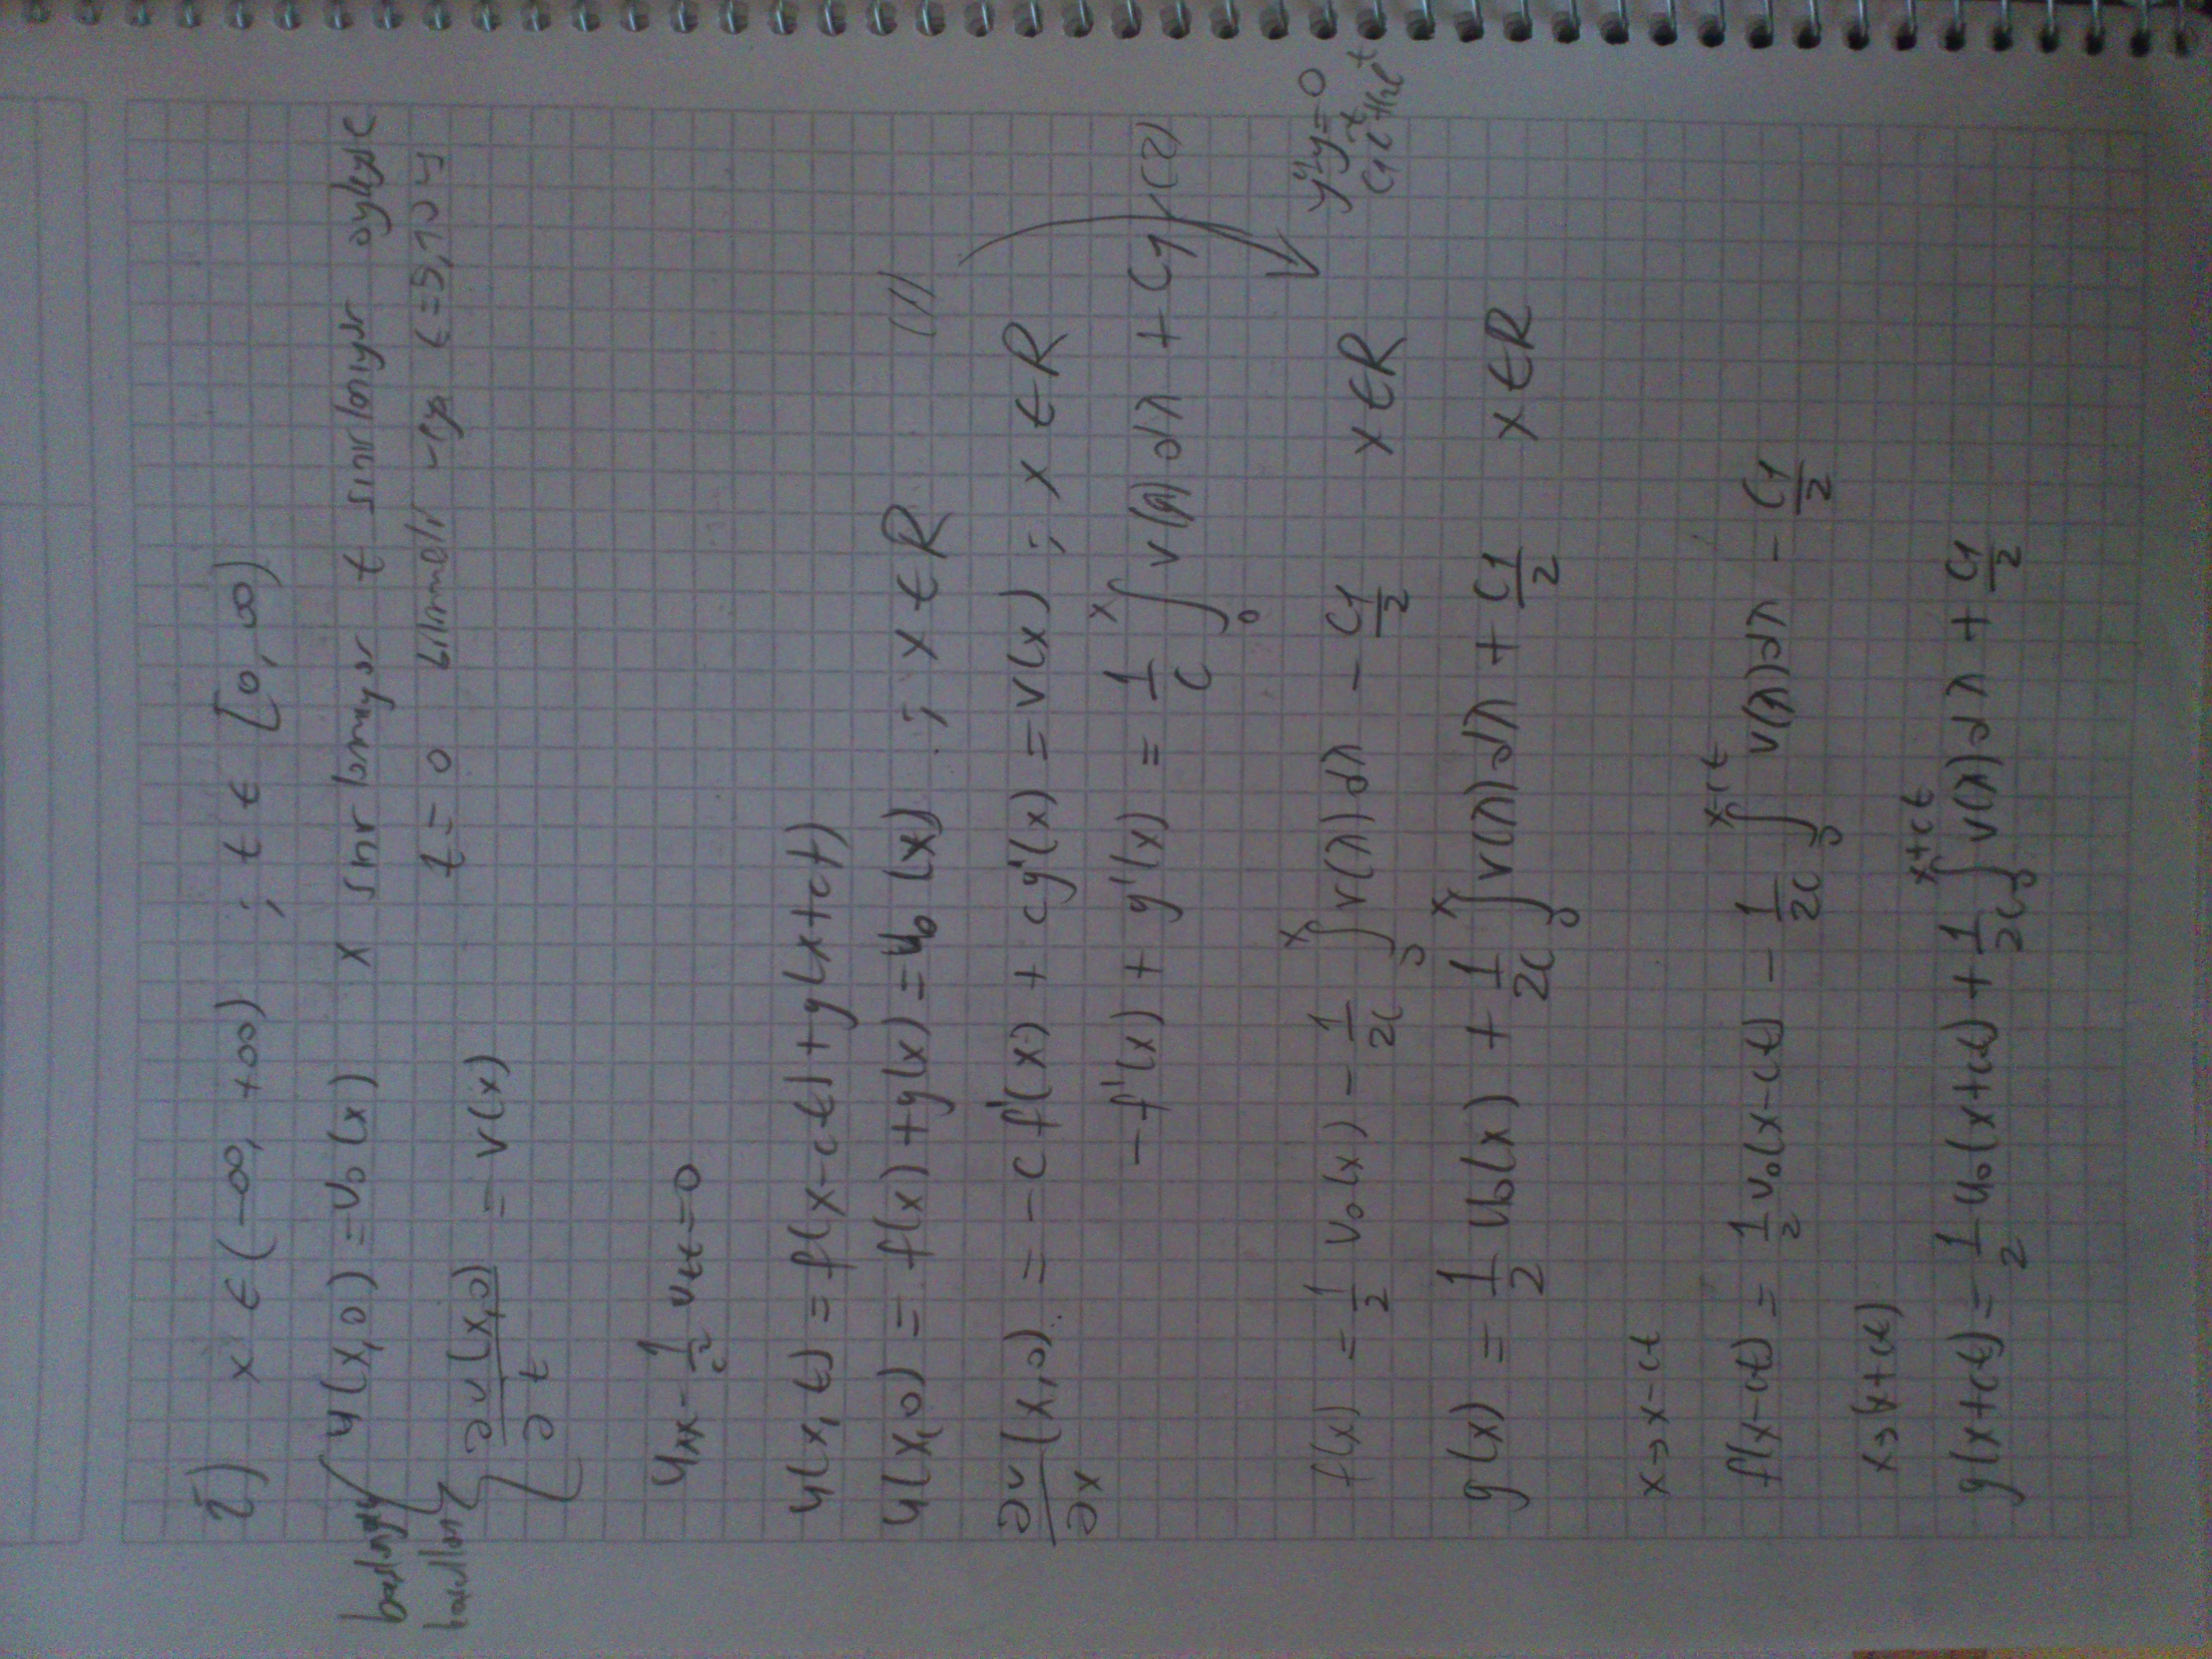 i) x ∈ (-∞, +∞) ; t ∈ [0, ∞)
başlangıç koşulları
u(x,0) = u₀(x) x sınırlanmıyor t sınırlanıyor öyleyse
t = 0 bilinmeli veya t=5,10
∂u(x,0)/∂t = v(x)
uxx - 1/c² utt = 0
u(x,t) = f(x-ct) + g(x+ct)
u(x,0) = f(x) + g(x) = u₀(x) ; x ∈ R (1)
∂u/∂x (x,0) = -c f'(x) + c g'(x) = v(x) ; x ∈ R
-f'(x) + g'(x) = 1/c ∫₀ˣ v(λ) dλ + C1 (2)
f(x) = 1/2 u₀(x) - 1/2c ∫₀ˣ v(λ) dλ - C1/2 x ∈ R
g(x) = 1/2 u₀(x) + 1/2c ∫₀ˣ v(λ) dλ + C1/2 x ∈ R
x → x-ct
f(x-ct) = 1/2 u₀(x-ct) - 1/2c ∫₀^(x-ct) v(λ) dλ - C1/2
x → (x+ct)
g(x+ct) = 1/2 u₀(x+ct) + 1/2c ∫₀^(x+ct) v(λ) dλ + C1/2